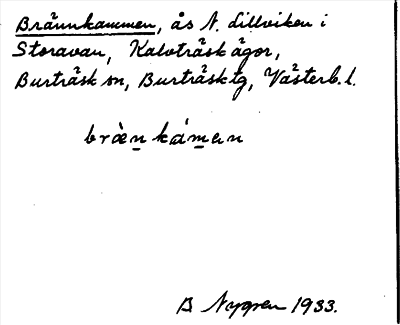 Brännkammen, ås N. Lillviken i
Storavan, Kalvträsk ägor,
Burträsk sn, Burträsk tg, Västerb. l.
bràen kámen
B Nygren 1933.